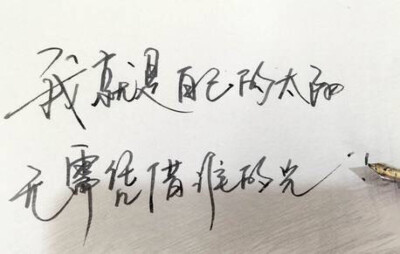 我就是自己的太阳
无需凭借谁的光